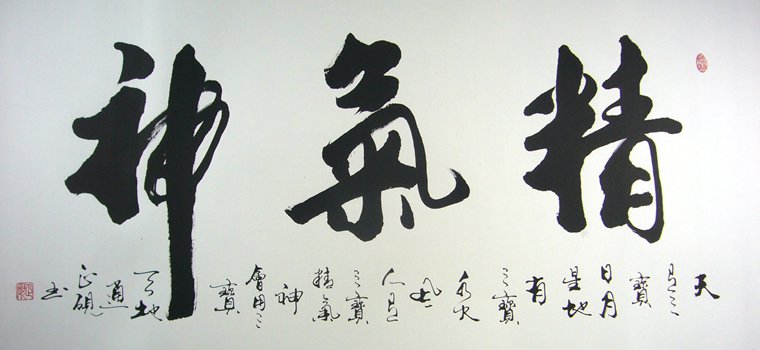 精氣神
天有三寶日月星地有三寶水火風人有三寶精氣神會用三寶天地通
正硯书